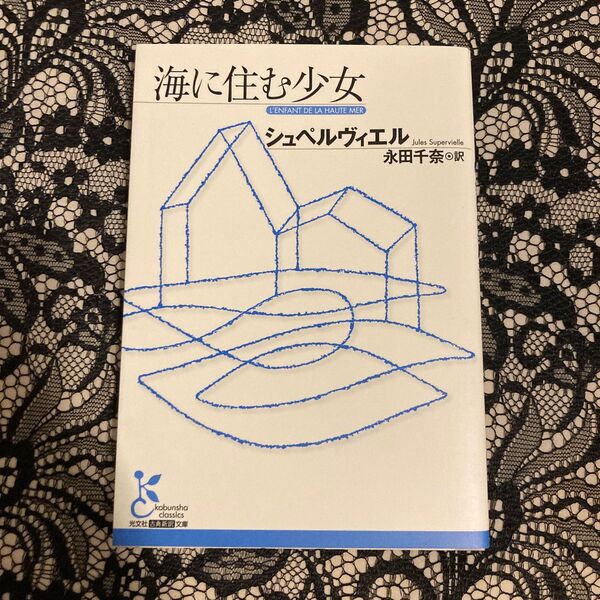 海に住む少女
L'ENFANT DE LA HAUTE MER
シュペルヴィエル
Jules Supervielle
永田千奈◎訳
kobunsha
classics
光文社古典新訳文庫